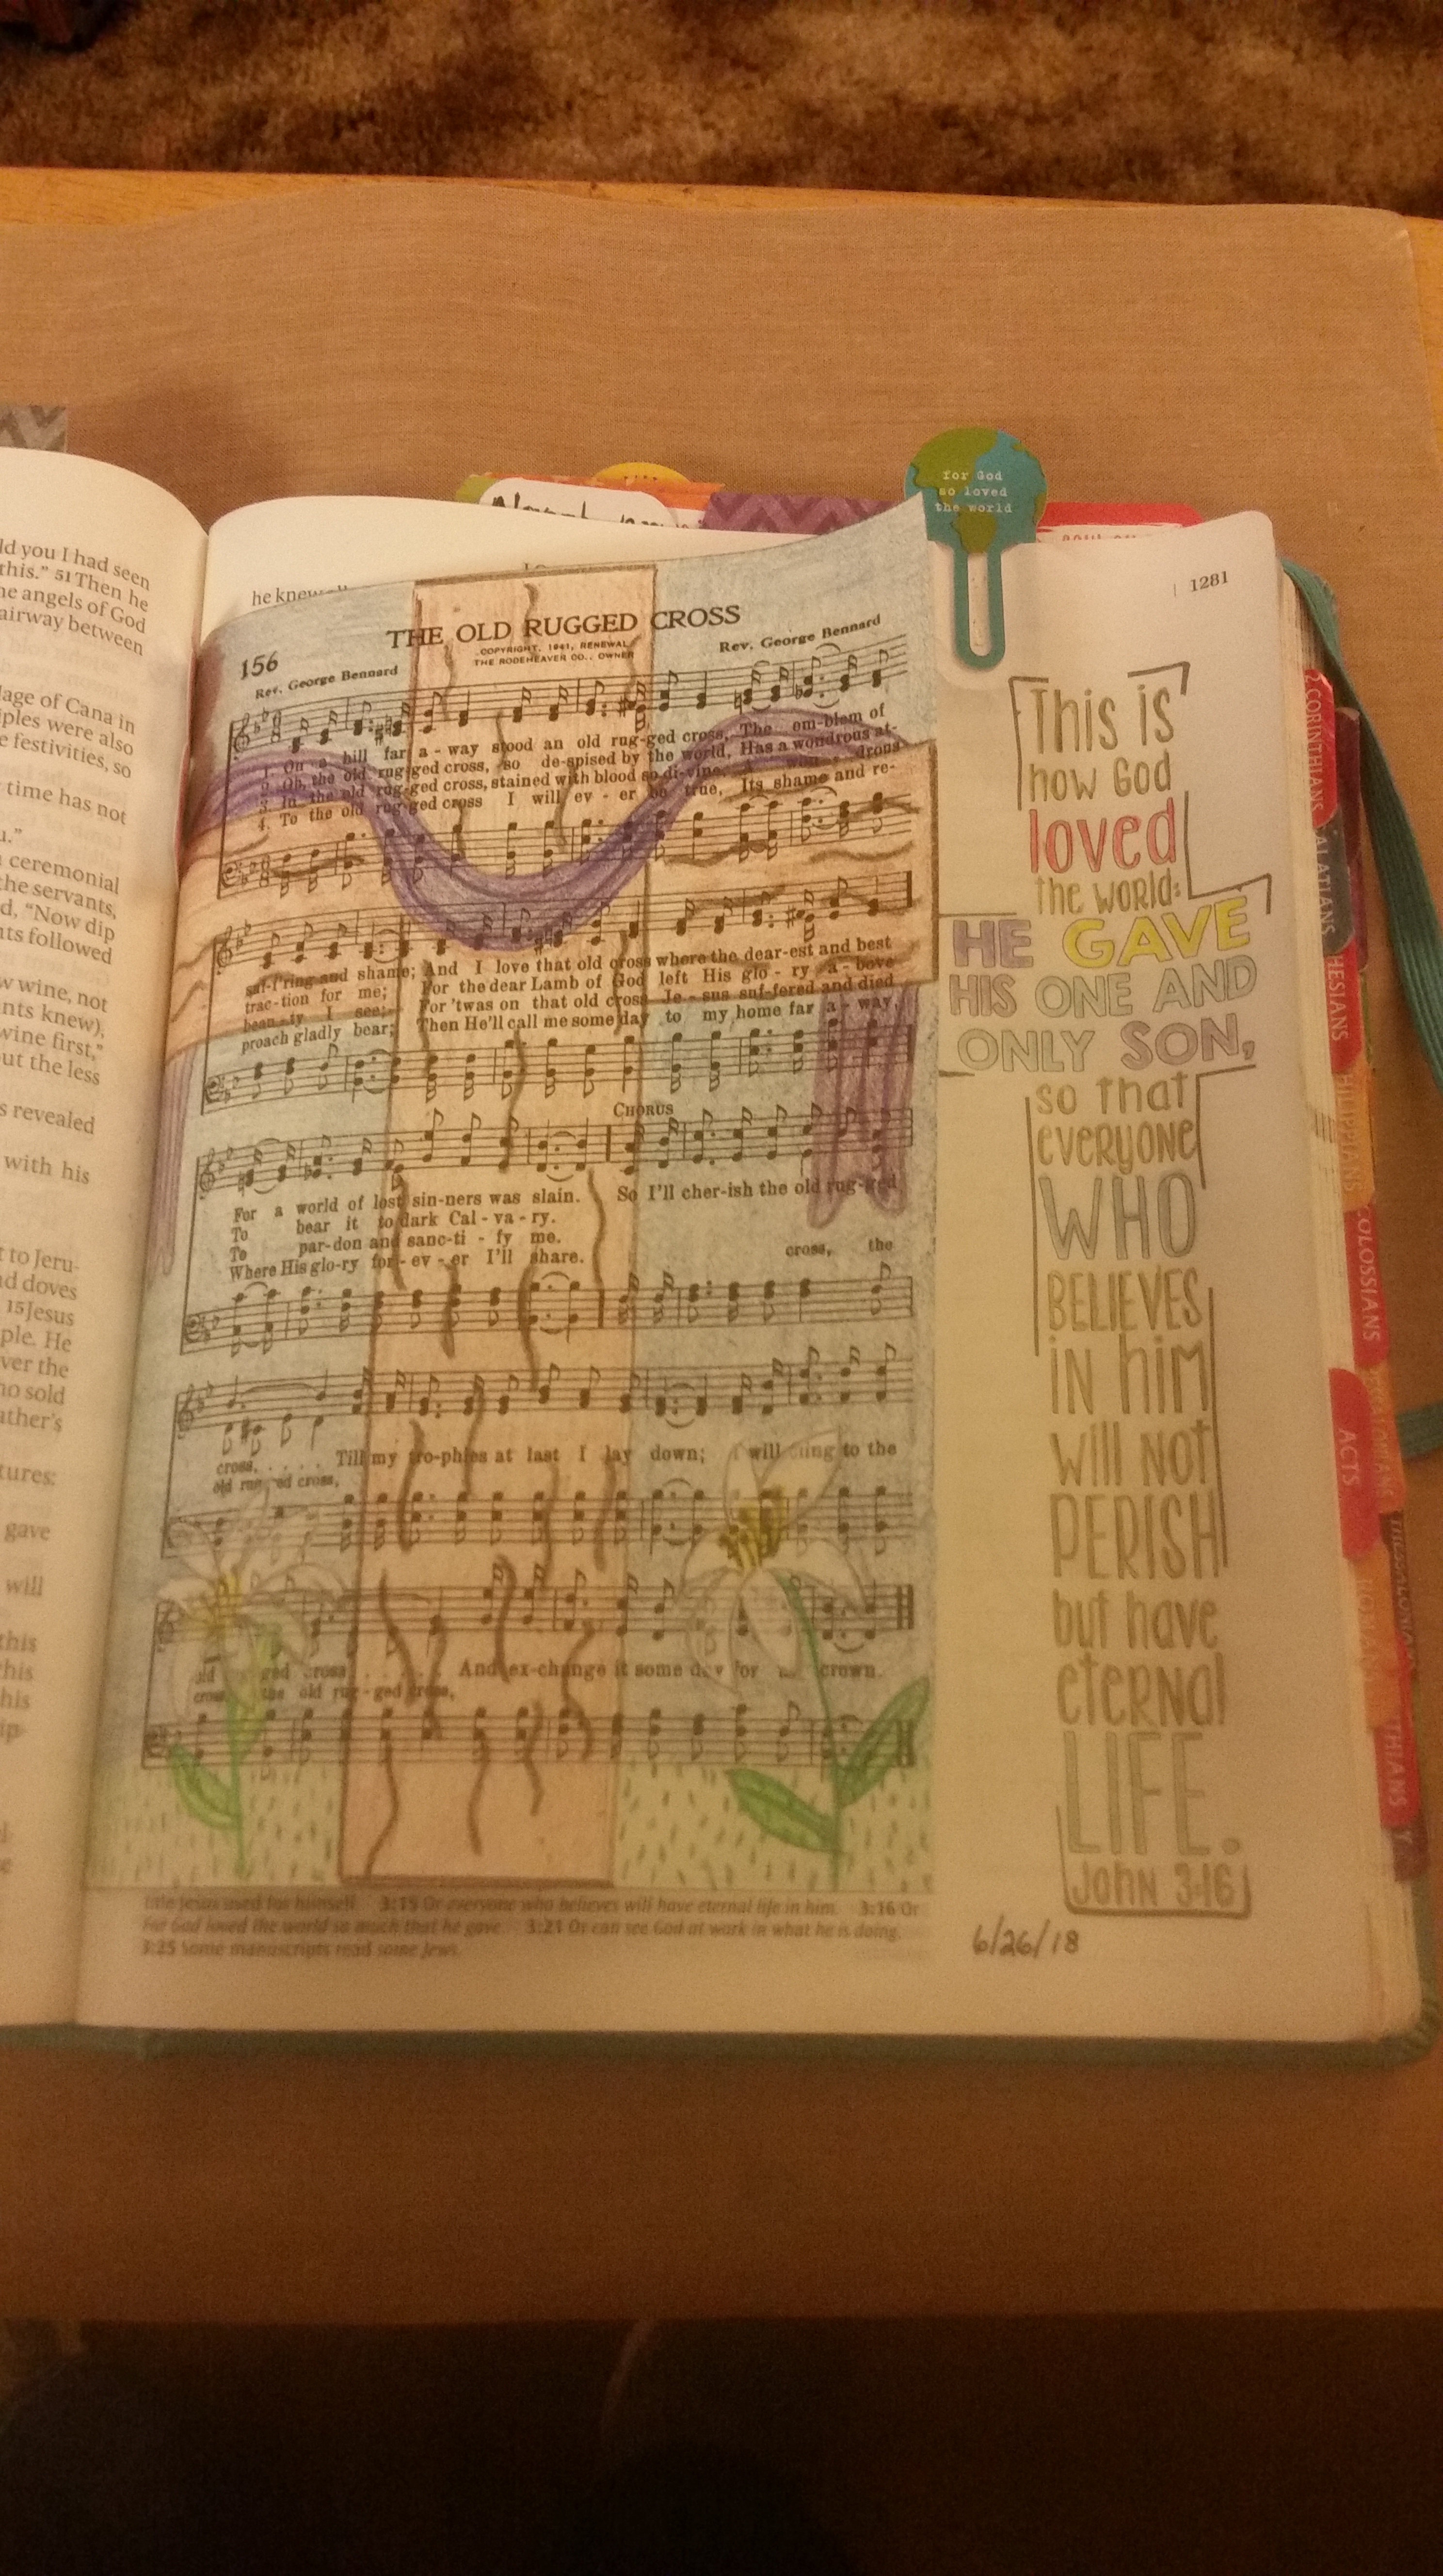 ld you I had seen
this." 51 Then he
he angels of God
airway between
lage of Cana in
iples were also
e festivities, so
time has not
u."
ceremonial
the servants,
d, "Now dip
nts followed
w wine, not
nts knew),
wine first,"
out the less
s revealed
with his
t to Jeru-
nd doves
15 Jesus
ple. He
ver the
ho sold
ather's
tures:
gave
will
this
his
his
ip-
for God
so loved
the world
1281
he knew
156
THE OLD RUGGED CROSS
COPYRIGHT, 1941, RENEWAL
THE RODEHEAVER CO., OWNER
Rev. George Bennard
Rev. George Bennard
1. On a hill far a - way stood an old rug-ged cross, The em-blem of
2. Oh, the old rug-ged cross, so de-spised by the world, Has a wondrous at-
3. In the old rug-ged cross, stained with blood so di-vine, A won - drous
4. To the old rug-ged cross I will ev - er be true, Its shame and re-
suf-f'ring and shame; And I love that old cross where the dear-est and best
trac-tion for me; For the dear Lamb of God left His glo - ry a - bove
beau-ty I see; For 'twas on that old cross Je - sus suf-fered and died
proach gladly bear; Then He'll call me some day to my home far a - way,
CHORUS
For a world of lost sin-ners was slain. So I'll cher-ish the old rug-ged
To bear it to dark Cal-va-ry.
To par-don and sanc-ti - fy me.
Where His glo-ry for-ev-er I'll share.
cross, the
cross, . . . . . Till my tro-phies at last I lay down; I will cling to the
old rug-ged cross,
old ged cross, . . . . . And ex-change it some day for crown.
cross, the old rug-ged cross,
title Jesus used for himself. 3:15 Or everyone who believes will have eternal life in him. 3:16 Or
For God loved the world so much that he gave. 3:21 Or can see God at work in what he is doing.
3:25 Some manuscripts read some Jews.
This is
how God
loved
the world:
HE GAVE
HIS ONE AND
ONLY SON,
so that
everyone
WHO
BELIEVES
in him
will not
PERISH
but have
eternal
LIFE.
John 3:16
6/26/18
2 CORINTHIANS
ALATIANS
HESIANS
HILIPPIANS
OLOSSIANS
ACTS
THIANS